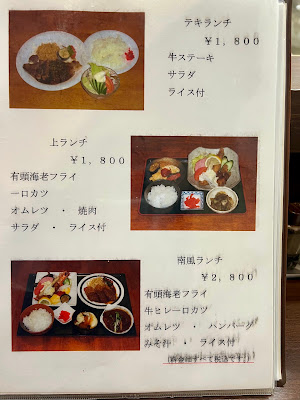 テキランチ
￥1,800
牛ステーキ
サラダ
ライス付
上ランチ
￥1,800
有頭海老フライ
一口カツ
オムレツ ・ 焼肉
サラダ ・ ライス付
南風ランチ
￥2,800
有頭海老フライ
牛ヒレ一口カツ
オムレツ ・ ハンバーグ
みそ汁 ・ ライス付